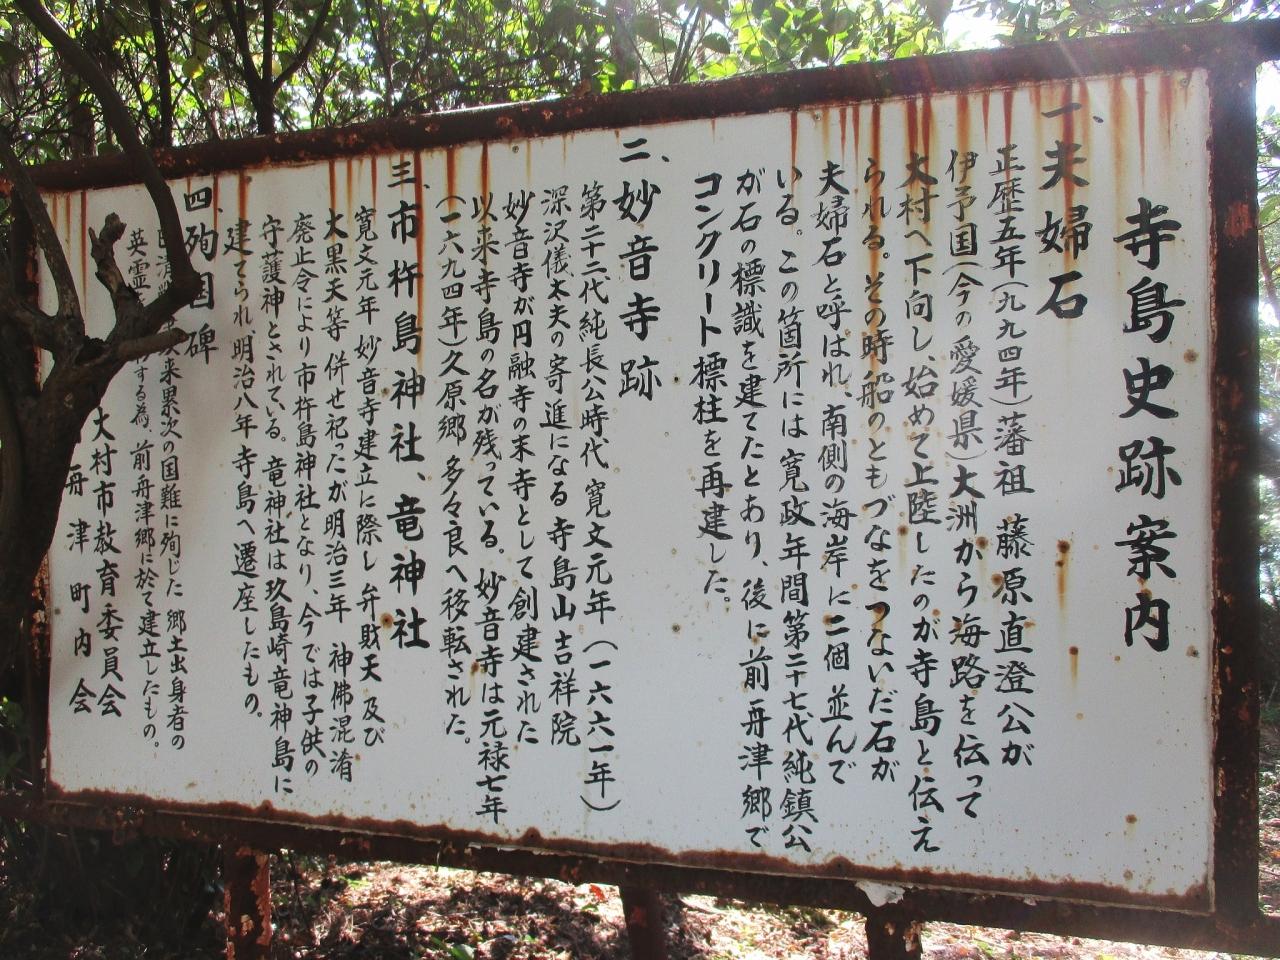 寺島史跡案内
一、夫婦石
正歴五年(九九四年)藩祖 藤原直澄公が
伊予国(今の愛媛県)大洲から海路を伝って
大村へ下向し、始めて上陸したのが寺島と伝え
られる。その時船のともづなをつないだ石が
夫婦石と呼ばれ、南側の海岸に二個並んで
いる。この箇所には寛政年間第二十七代純鎮公
が石の標識を建てたとあり、後に前舟津郷で
コンクリート標柱を再建した。
二、妙音寺跡
第二十二代純長公時代 寛文元年(一六六一年)
深沢儀太夫の寄進になる寺島山吉祥院
妙音寺が円融寺の末寺として創建された
以来寺島の名が残っている。妙音寺は元禄七年
(一六九四年)久原郷 多々良へ移転された。
三、市杵島神社、竜神社
寛文元年 妙音寺建立に際し弁財天及び
大黒天等 併せ祀ったが明治三年 神佛混淆
廃止令により市杵島神社となり、今では子供の
守護神とされている。竜神社は玖島崎竜神島に
建てられ、明治八年寺島へ遷座したもの。
四、殉国碑
日清 来累次の国難に殉じた 郷土出身者の
英霊 する為、前舟津郷に於て建立したもの。
大村市教育委員会
舟津町内会